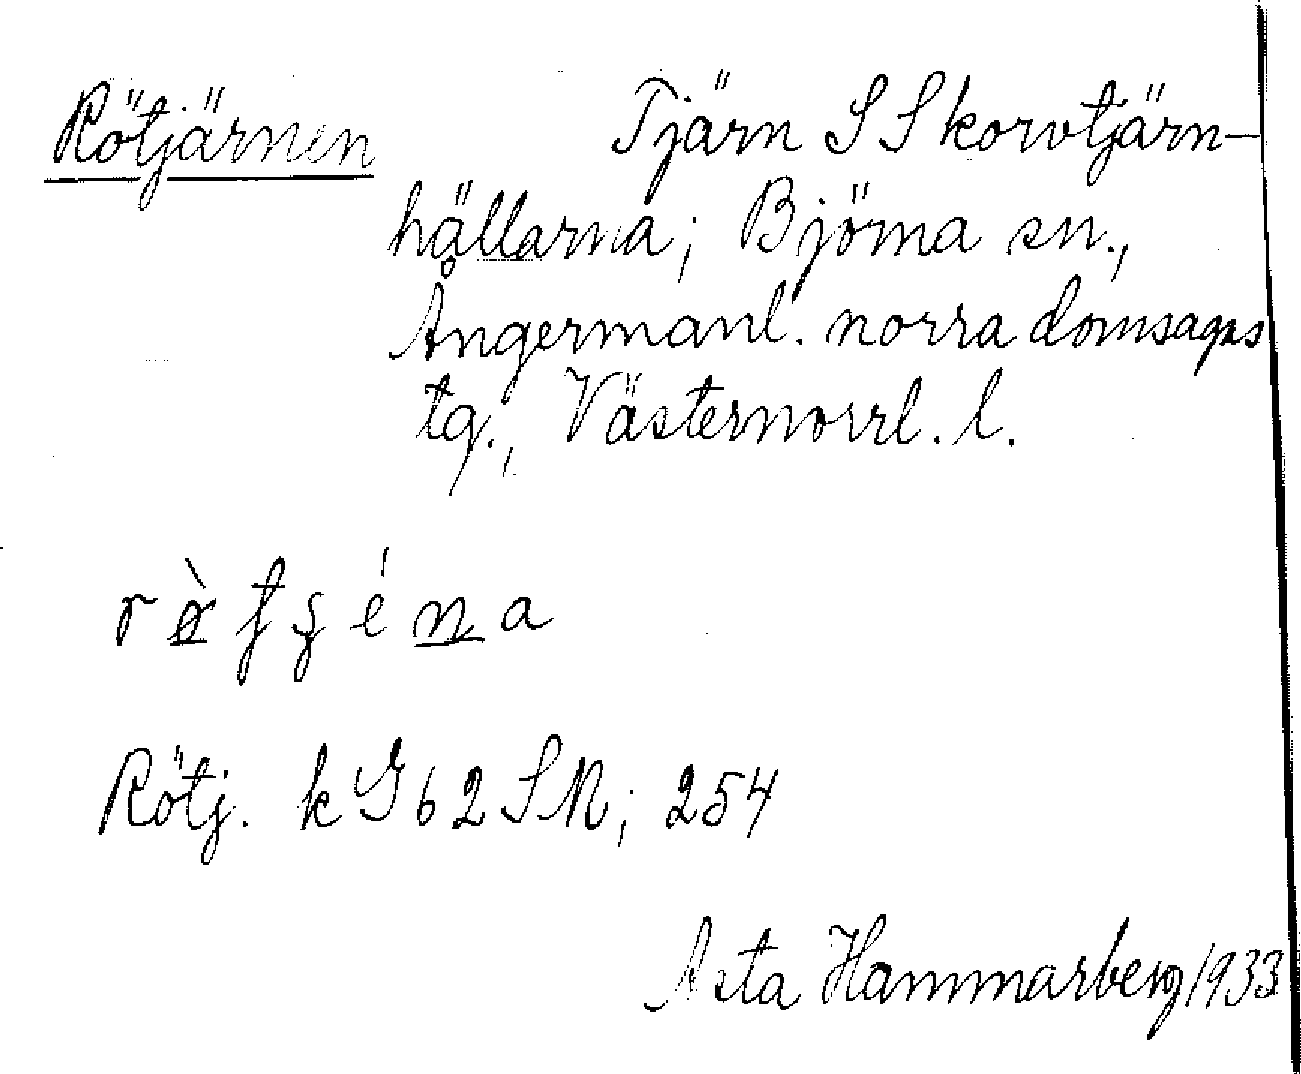 Rötjärnen Tjärn S Skorvtjärn-
hällarna; Björna sn.,
Ångermanl. norra domsagas
tg., Västernorrl. l.
Rötj. kG 62 SN; 254
Asta Hammarberg 1933